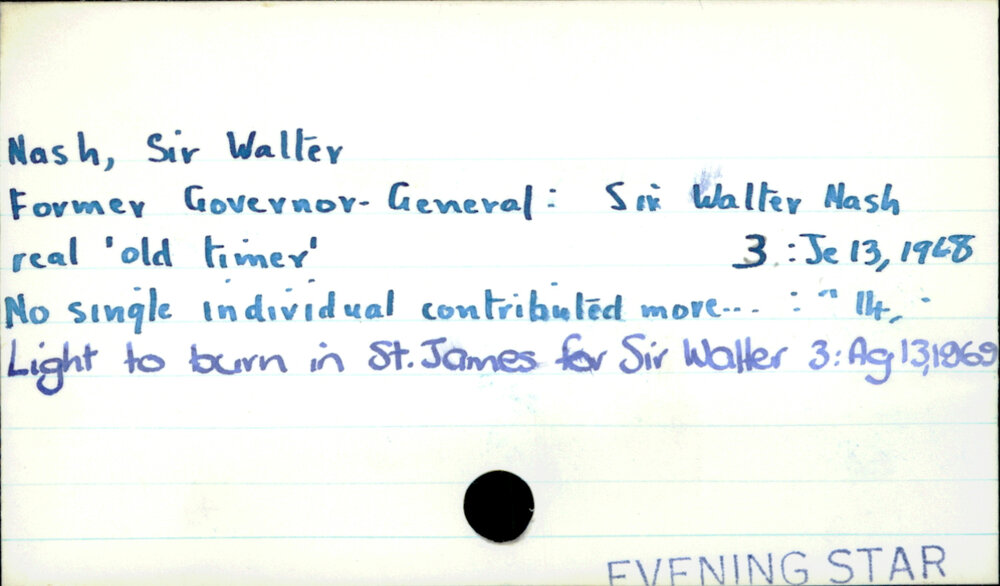 Nash, Sir Walter
Former Governor-General: Sir Walter Nash
real 'old timer' 3:Je 13, 1968
No single individual contributed more... : " 14, "
Light to burn in St. James for Sir Walter 3:Ag 13, 1969
EVENING STAR